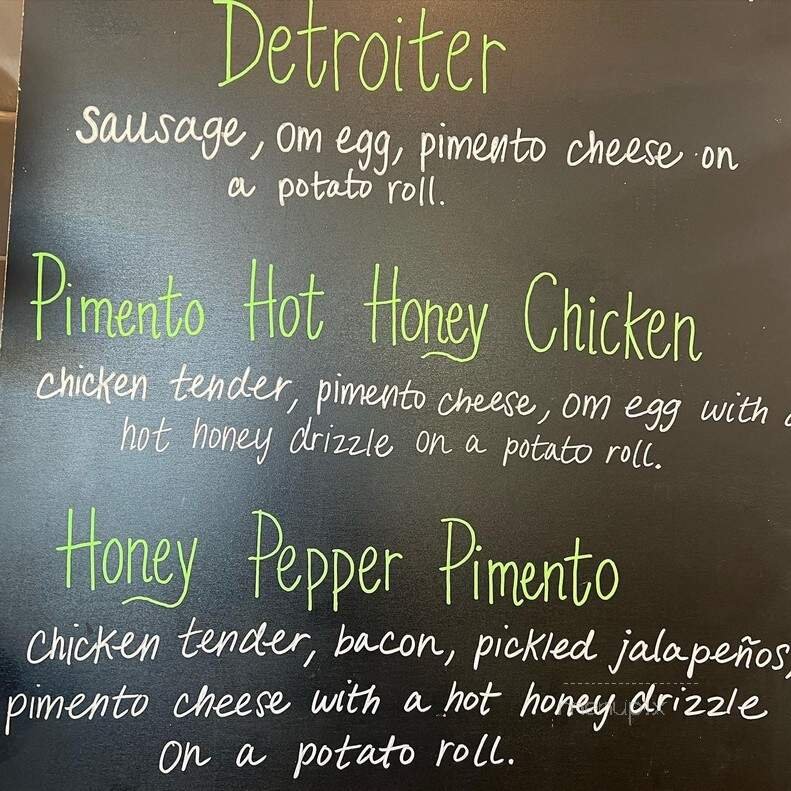 Detroiter
sausage, om egg, pimento cheese on
a potato roll.
Pimento Hot Honey Chicken
chicken tender, pimento cheese, om egg with a
hot honey drizzle on a potato roll.
Honey Pepper Pimento
chicken tender, bacon, pickled jalapeños,
pimento cheese with a hot honey drizzle
on a potato roll.